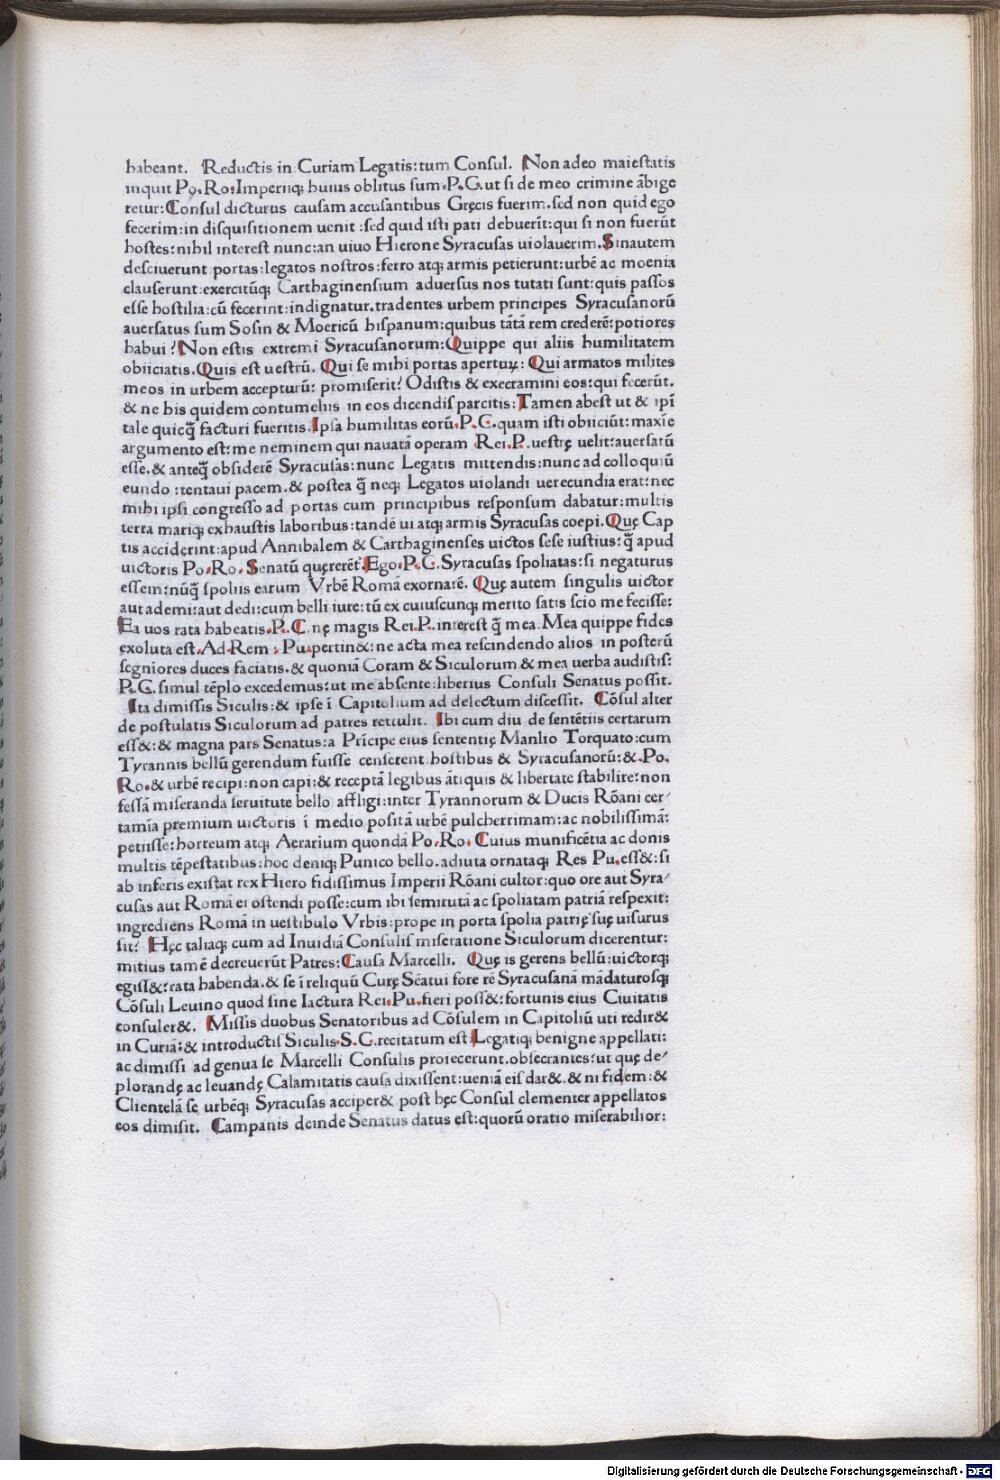 habeant. Reductis in Curiam Legatis:tum Consul. Non adeo maiestatis
inquit Po.Ro.Imperiiq; huius oblitus sum.P.G.ut si de meo crimine ābige
retur:Consul dicturus causam accusantibus Gręcis fuerim.sed non quid ego
fecerim:in disquisitionem uenit :sed quid isti pati debuerīt:qui si non fuerūt
hostes:nihil interest nunc:an uiuo Hierone Syracusas uiolauerim.Sinautem
desciuerunt portas:legatos nostros:ferro atq; armis petierunt:urbē ac moenia
clauserunt:exercitūq; Carthaginensium aduersus nos tutati sunt:quis passos
esse hostilia:cū fecerint:indignatur.tradentes urbem principes Syracusanorū
auersatus sum Sosin & Moericū hispanum:quibus tātā rem crederē:potiores
habui? Non estis extremi Syracusanorum:Quippe qui aliis humilitatem
obiiciatis.Quis est uestrū. Qui se mihi portas aperturꝝ: Qui armatos milites
meos in urbem accepturū: promiserit? Odistis & execramini eos:qui fecerūt.
& ne his quidem contumeliis in eos dicendis parcitis:Tamen abest ut & ipī
tale quicq̄ facturi fueritis.Ipsa humilitas eorū.P.C.quam isti obiiciūt:maxīe
argumento est:me neminem qui nauatā operam Rei.P.uestrę uelit:auersatū
esse.& anteq̄ obsiderē Syracusas:nunc Legatis mittendis:nunc ad colloquiū
eundo :tentaui pacem.& postea q̄ neq; Legatos uiolandi uerecundia erat:nec
mihi ipsi congresso ad portas cum principibus responsum dabatur:multis
terra mariq; exhaustis laboribus:tandē ui atq; armis Syracusas coepi.Quę Cap
tis acciderint:apud Annibalem & Carthaginenses uictos sese iustius:q̄ apud
uictoris Po.Ro.Senatū quęrerēt.Ego.P.C.Syracusas spoliatas:si negaturus
essem:nūq̄ spoliis earum Vrbē Romā exornarē. Quę autem singulis uictor
aut ademi:aut dedi:cum belli iure:tū ex cuiuscunq; merito satis scio me fecisse:
Ea uos rata habeatis.P.C.nę magis Rei.P.interest q̄ mea.Mea quippe fides
exoluta est.Ad.Rem : Pu.pertin&:ne acta mea rescindendo alios in posterū
segniores duces faciatis.& quoniā Coram & Siculorum & mea uerba audistis:
P.G.simul tēplo excedemus:ut me absente:liberius Consuli Senatus possit.
Ita dimissis Siculis:& ipse ī Capitolium ad delectum discessit. Cōsul alter
de postulatis Siculorum ad patres rettulit. Ibi cum diu de sentētiis certarum
ess&:& magna pars Senatus:a Prīcipe eius sententię Manlio Torquato:cum
Tyrannis bellū gerendum fuisse censerent hostibus & Syracusanorū:&.Po.
Ro.& urbē recipi:non capi:& receptā legibus ātiquis & libertate stabilire:non
fessā miseranda seruitute bello affligi:inter Tyrannorum & Ducis Rōani cer⸗
tamīa premium uictoris ī medio positā urbē pulcherrimam:ac nobilissimā:
periisse:horreum atq; Aerarium quondā Po.Ro. Cuius munificētia ac donis
multis tēpestatibus:hoc deniq; Punico bello.adiuta ornataq; Res Pu.ess&:si
ab inferis existat rex Hiero fidissimus Imperii Rōani cultor:quo ore aut Syra⸗
cusas aut Romā ei ostendi posse:cum ibi semirutā ac spoliatam patriā respexit:
ingrediens Romā in uestibulo Vrbis:prope in porta spolia patrię suę uisurus
sit? Hęc taliaq; cum ad Inuidiā Consulis miseratione Siculorum dicerentur:
mitius tamē decreuerūt Patres:Causa Marcelli. Quę is gerens bellū:uictorq;
egiss&:rata habenda.& se ī reliquū Curę Sēatui fore rē Syracusanā mādaturosq;
Cōsuli Leuino quod sine Iactura Rei.Pu.fieri poss&:fortunis eius Ciuitatis
consuler&. Missis duobus Senatoribus ad Cōsulem in Capitoliū uti redir&
in Curiā:& introductis Siculis.S.G.recitatum est.Legatiq; benigne appellati:
ac dimissi ad genua se Marcelli Consulis proiecerunt.obsecrantes:ut quę de⸗
plorandę ac leuandę Calamitatis causa dixissent:ueniā eis dar&.& ni fidem:&
Clientelā se urbēq; Syracusas acciper& post hęc Consul clementer appellatos
eos dimisit. Campanis deinde Senatus datus est:quorū oratio miserabilior:
Digitalisierung gefördert durch die Deutsche Forschungsgemeinschaft - DFG